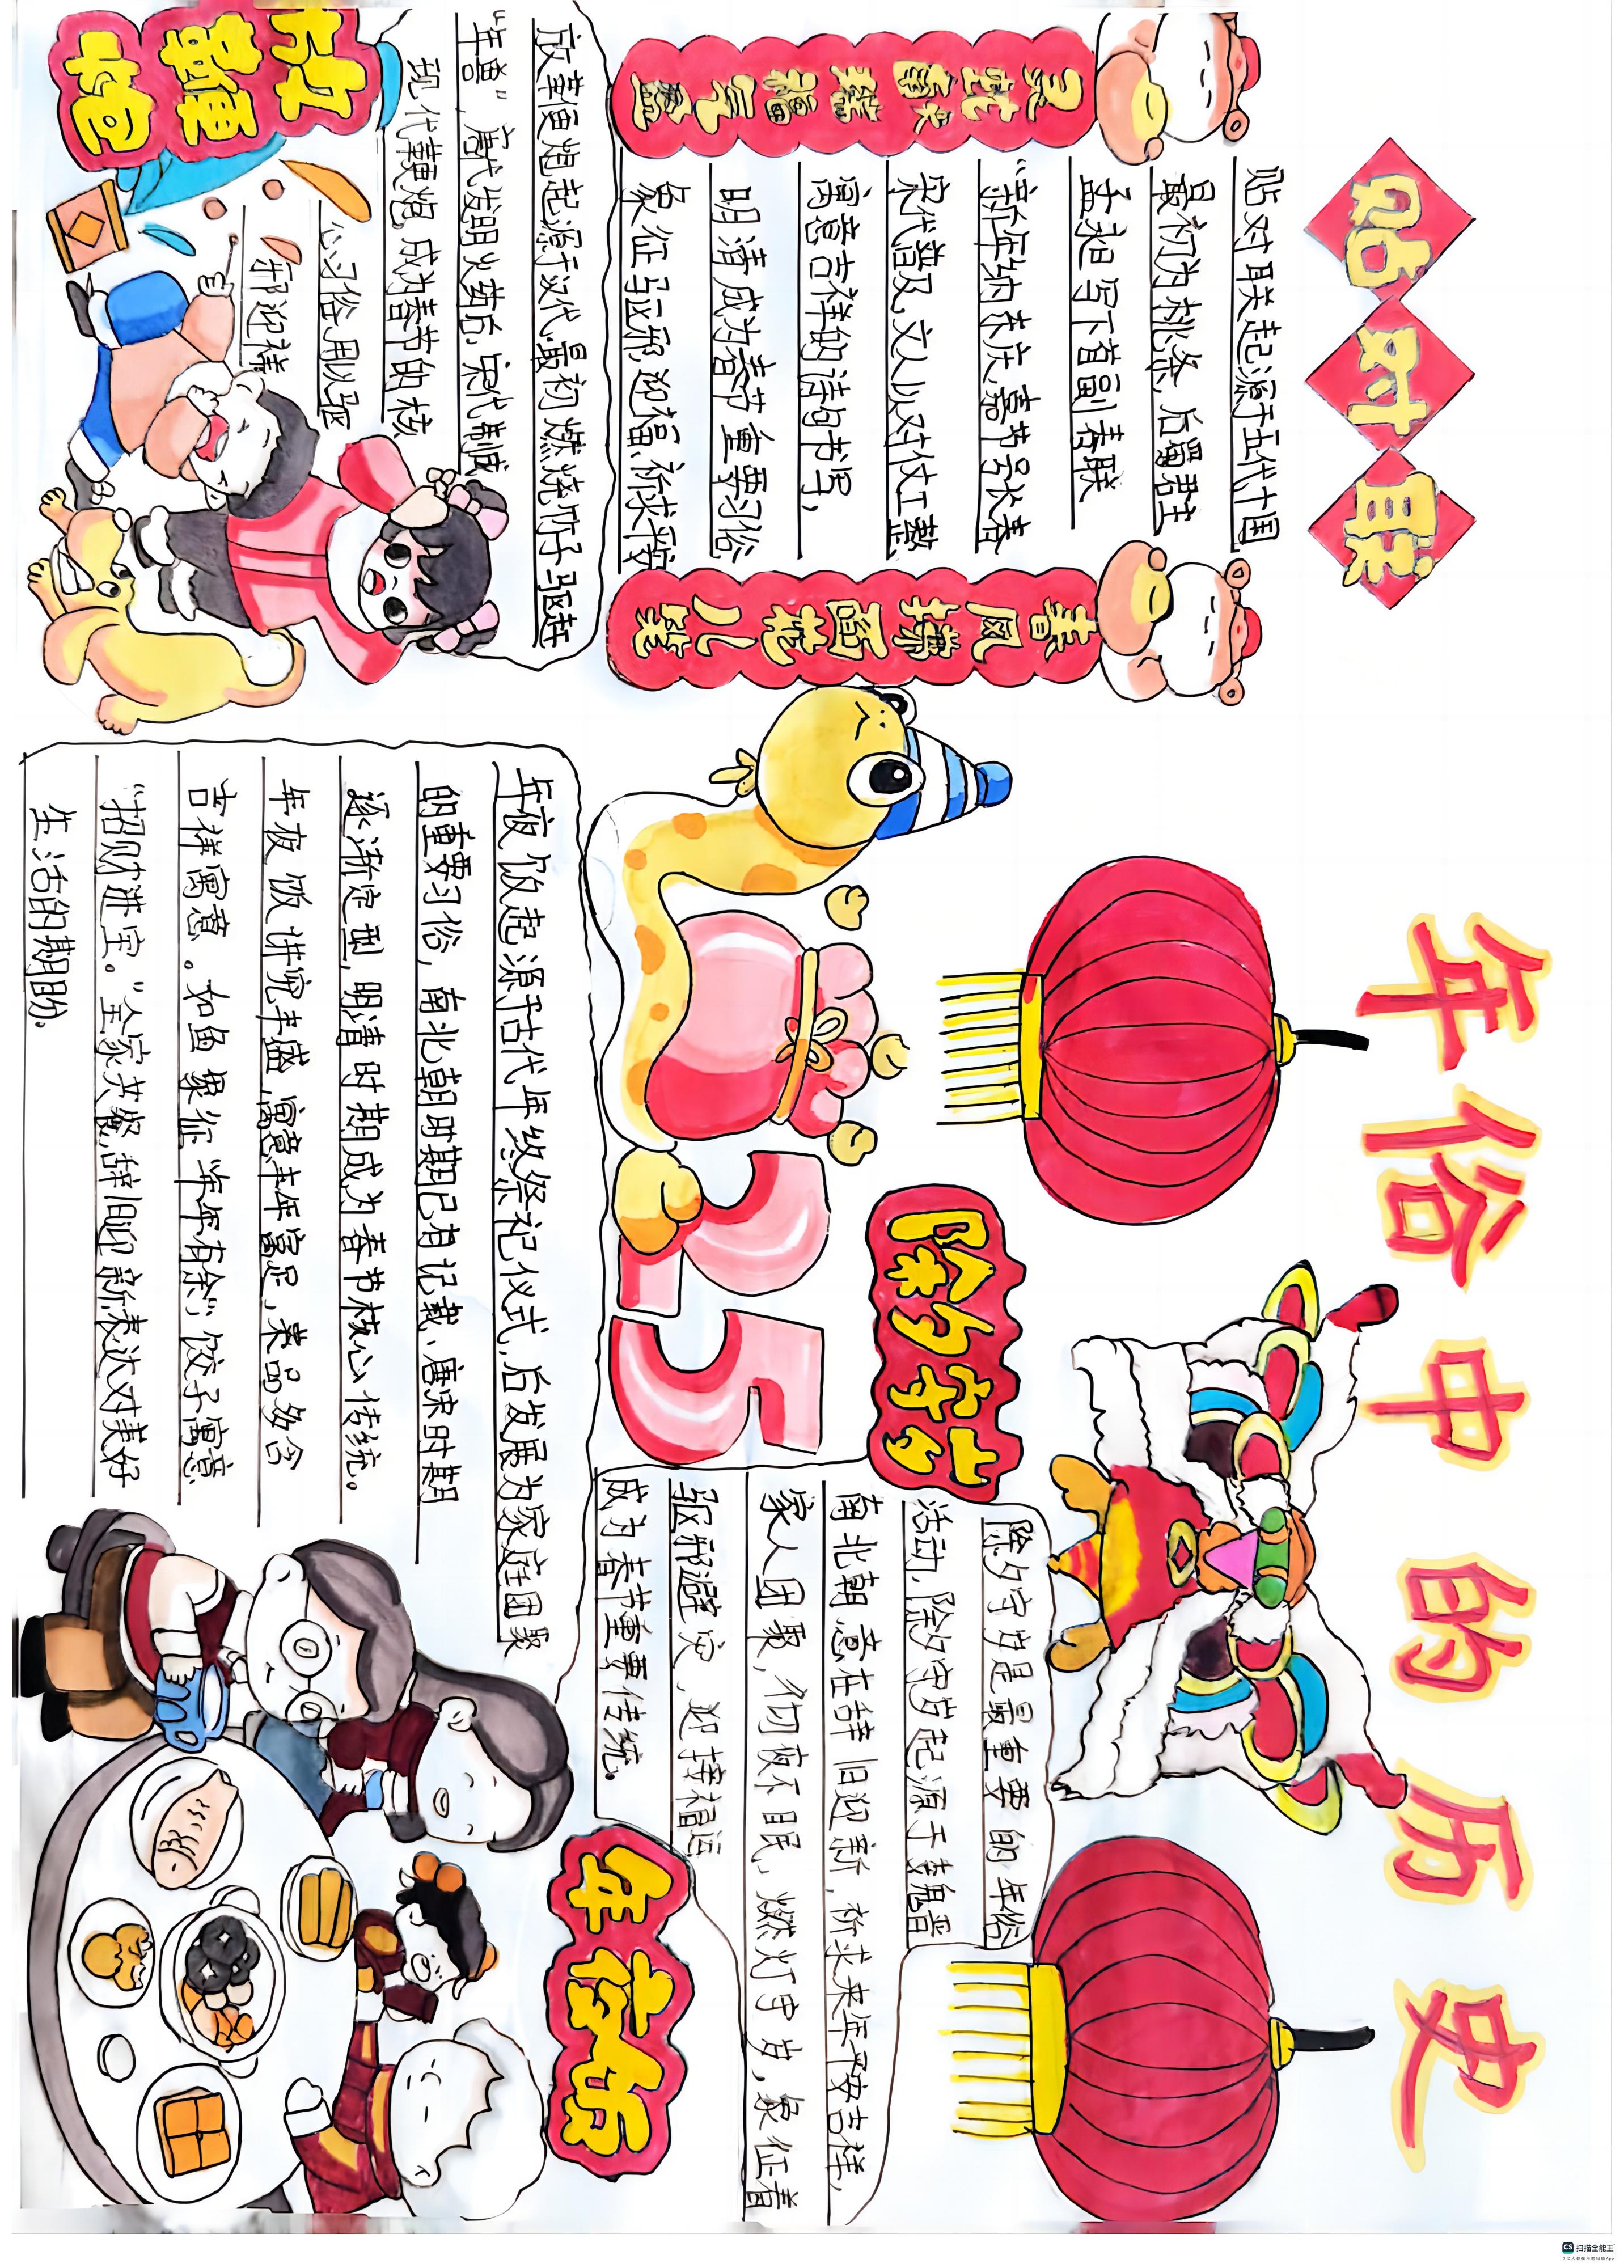 年俗中的历史
贴对联
贴对联起源于五代十国
最初为桃条，后蜀君主
孟昶写下首副春联
“新年纳余庆，嘉节号长春
宋代普及，文人以对仗工整
寓意吉祥的诗句书写，
明清成为春节重要习俗
象征驱邪迎福、祈求平安
灵蛇衔瑞福气盈
春风拂面花儿笑
放鞭炮
放鞭炮起源于汉代，最初燃烧竹子驱赶
“年兽”，唐代发明火药后，宋代制成
现代鞭炮，成为春节的核
心习俗，用以驱
邪迎祥
25
除夕守岁
除夕守岁是最重要的年俗
活动，除夕守岁起源于魏晋
南北朝，意在辞旧迎新，祈求来年平安吉祥，
家人团聚，彻夜不眠，燃灯守岁，象征着
驱邪避灾，迎接福运
成为春节重要传统。
年夜饭
年夜饭起源于古代年终祭祀仪式，后发展为家庭团聚
的重要习俗，南北朝时期已有记载、唐宋时期
逐渐定型，明清时期成为春节核心传统。
年夜饭讲究丰盛，寓意丰年富足，菜品多含
吉祥寓意。如鱼象征“年年有余”，饺子寓意
“招财进宝。”全家共餐，辞旧迎新表达对美好
生活的期盼。
CS 扫描全能王
3亿人都在用的扫描App